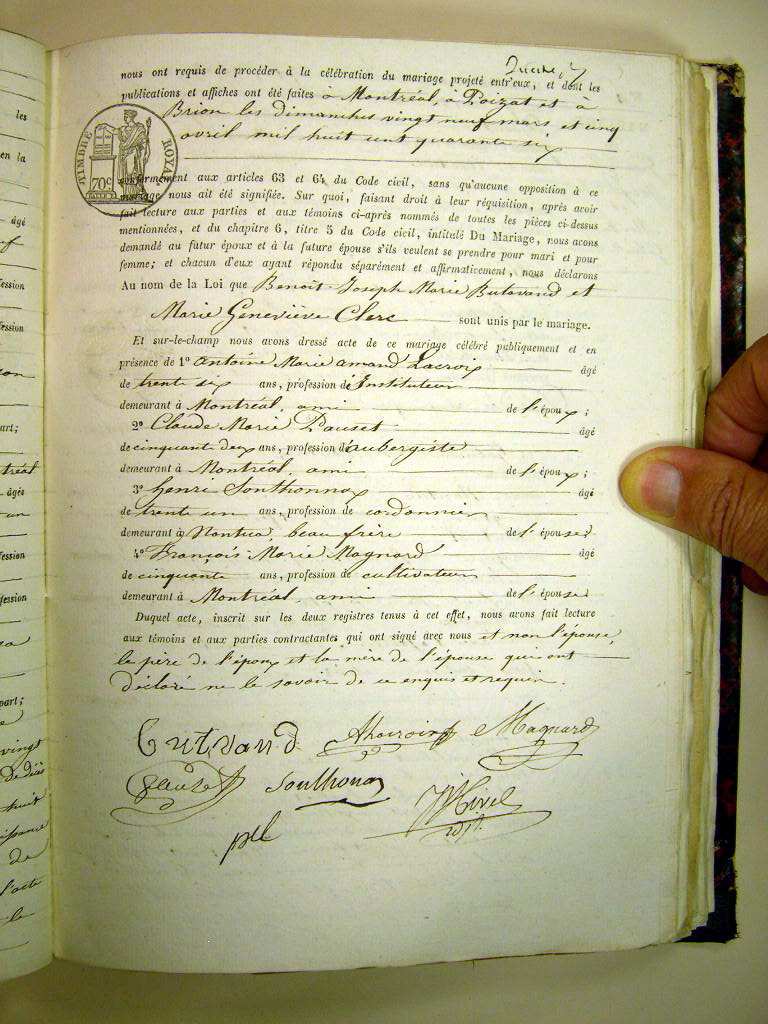 nous ont requis de procéder à la célébration du mariage projeté entr'eux, et dont les
publications et affiches ont été faites à Montréal, à Poizat et à
Brion les dimanches vingt neuf mars et cinq
avril mil huit cent quarante six
TIMBRE ROYAL
70c
conformément aux articles 63 et 64 du Code civil, sans qu'aucune opposition à ce
mariage nous ait été signifiée. Sur quoi, faisant droit à leur réquisition, après avoir
fait lecture aux parties et aux témoins ci-après nommés de toutes les pièces ci-dessus
mentionnées, et du chapitre 6, titre 5 du Code civil, intitulé Du Mariage, nous avons
demandé au futur époux et à la future épouse s'ils veulent se prendre pour mari et pour
femme; et chacun d'eux ayant répondu séparément et affirmativement, nous déclarons
Au nom de la Loi que Benoit Joseph Marie Butavand et
Marie Geneviève Clerc sont unis par le mariage.
Et sur-le-champ nous avons dressé acte de ce mariage célébré publiquement et en
présence de 1º Antoine Marie amand Lacroix âgé
de trente six ans, profession d'Instituteur
demeurant à Montréal, ami de l'époux;
2º Claude Marie Pauset âgé
de cinquante deux ans, profession d'aubergiste
demeurant à Montréal, ami de l'époux;
3º Henri Sonthonnax âgé
de trente un ans, profession de cordonnier
demeurant à Nantua, beau frère de l'épouse;
4º François Marie Magnard âgé
de cinquante ans, profession de cultivateur
demeurant à Montréal, ami de l'épouse
Duquel acte, inscrit sur les deux registres tenus à cet effet, nous avons fait lecture
aux témoins et aux parties contractantes qui ont signé avec nous et non l'épouse,
le père de l'époux et la mère de l'épouse qui ont
déclaré ne le savoir de ce enquis et requis.
Butavand ALacroix Magnard
Pauset Sonthonax